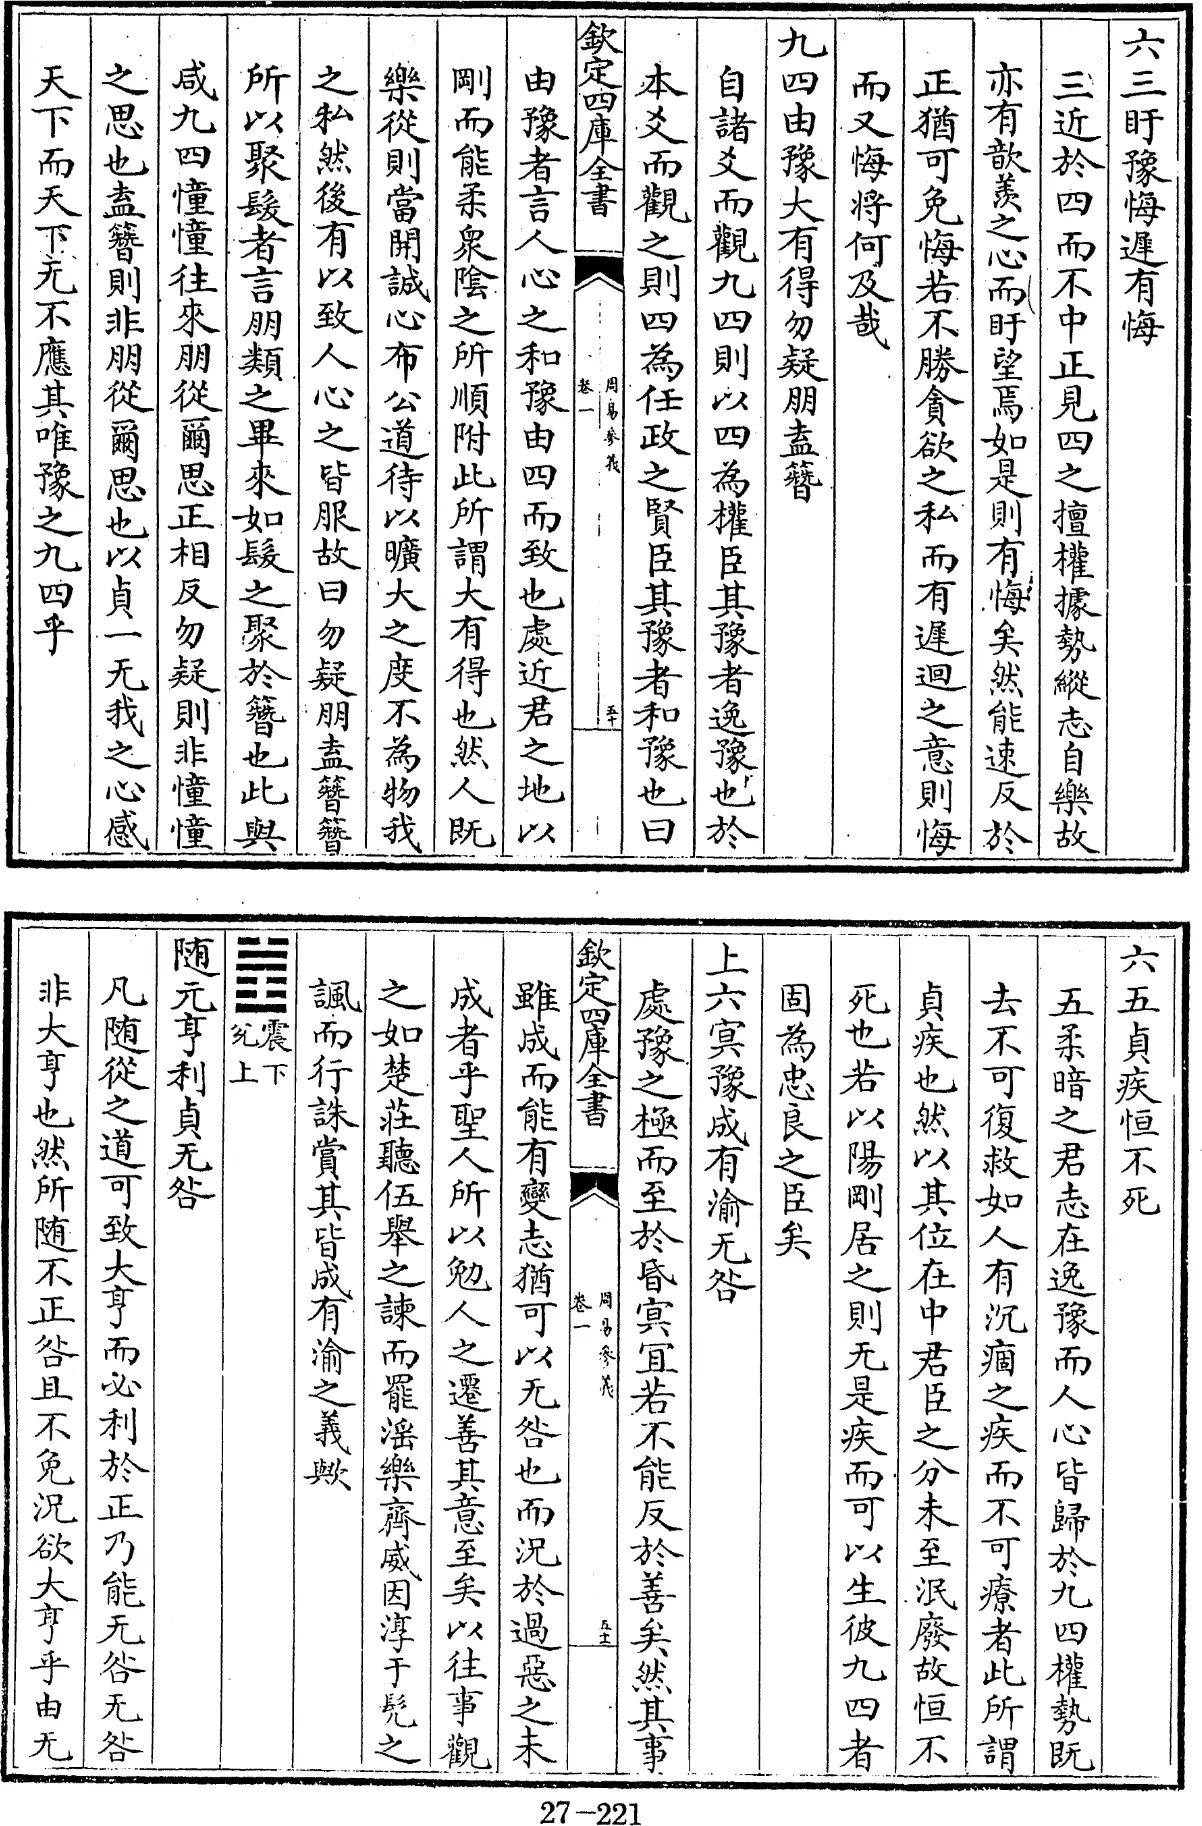 六三盱豫悔遲有悔
三近於四而不中正見四之擅權據勢縱志自樂故
亦有歆羨之心而盱望焉如是則有悔矣然能速反於
正猶可免悔若不勝貪欲之私而有遲迴之意則悔
而又悔將何及哉
九四由豫大有得勿疑朋盍簪
自諸爻而觀九四則以四為權臣其豫者逸豫也於
本爻而觀之則四為任政之賢臣其豫者和豫也曰
欽定四庫全書
周易參義
卷一
五十
由豫者言人心之和豫由四而致也處近君之地以
剛而能柔衆陰之所順附此所謂大有得也然人既
樂從則當開誠心布公道待以曠大之度不為物我
之私然後有以致人心之皆服故曰勿疑朋盍簪簪
所以聚髮者言朋類之畢來如髮之聚於簪也此與
咸九四憧憧往來朋從爾思正相反勿疑則非憧憧
之思也盍簪則非朋從爾思也以貞一无我之心感
天下而天下无不應其唯豫之九四乎
六五貞疾恒不死
五柔暗之君志在逸豫而人心皆歸於九四權勢既
去不可復救如人有沉痼之疾而不可療者此所謂
貞疾也然以其位在中君臣之分未至泯廢故恒不
死也若以陽剛居之則无是疾而可以生彼九四者
固為忠良之臣矣
上六冥豫成有渝无咎
處豫之極而至於昏冥宜若不能反於善矣然其事
欽定四庫全書
周易參義
卷一
五十一
雖成而能有變志猶可以无咎也而況於過惡之未
成者乎聖人所以勉人之遷善其意至矣以往事觀
之如楚莊聽伍舉之諫而罷滛樂齊威因淳于髠之
諷而行誅賞其皆成有渝之義歟
震下
兊上
随元亨利貞无咎
凡随從之道可致大亨而必利於正乃能无咎无咎
非大亨也然所随不正咎且不免況欲大亨乎由无
27-221